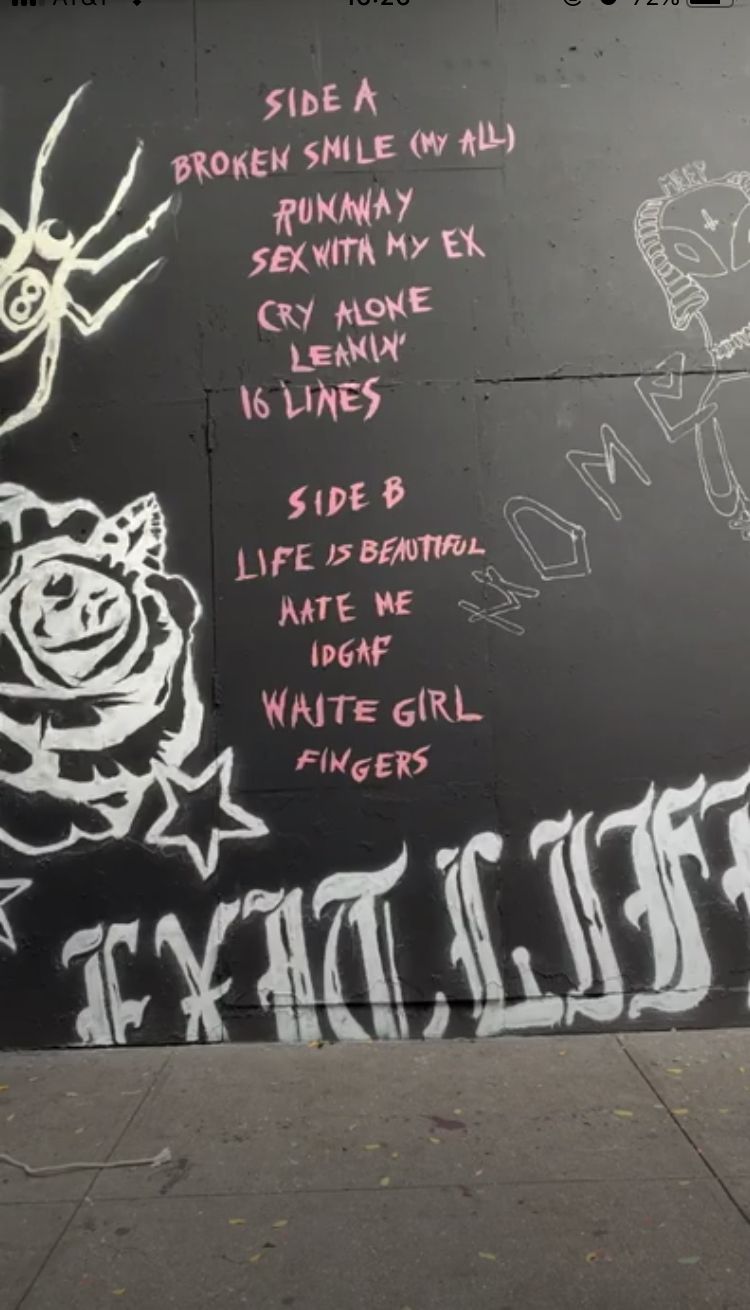 SIDE A
BROKEN SMILE (MY ALL)
RUNAWAY
SEX WITH MY EX
CRY ALONE
LEANIN'
16 LINES
SIDE B
LIFE IS BEAUTIFUL
HATE ME
IDGAF
WHITE GIRL
FINGERS
8
EXIT LIFE
72%